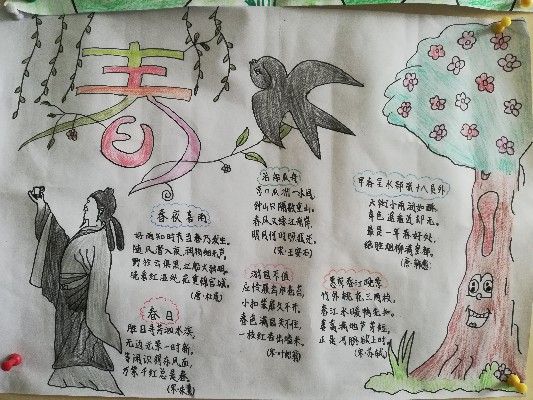 春
春夜喜雨
好雨知时节当春乃发生。
随风潜入夜,润物细无声。
野径云俱黑,江船火独明。
晓看红湿处,花重锦官城。
(唐·杜甫)
春日
胜日寻芳泗水滨,
无边光景一时新。
等闲识得东风面,
万紫千红总是春。
(宋·朱熹)
泊船瓜舟
京口瓜洲一水间,
钟山只隔数重山。
春风又绿江南岸,
明月何时照我还。
(宋·王安石)
游园不值
应怜屐齿印苍苔,
小扣柴扉久不开。
春色满园关不住,
一枝红杏出墙来。
(宋·叶绍翁)
早春呈水部张十八员外
天街小雨润如酥,
草色遥看近却无。
最是一年春好处,
绝胜烟柳满皇都。
(唐·韩愈)
惠崇春江晚景
竹外桃花三两枝,
春江水暖鸭先知。
蒌蒿满地芦芽短,
正是河豚欲上时。
(宋·苏轼)